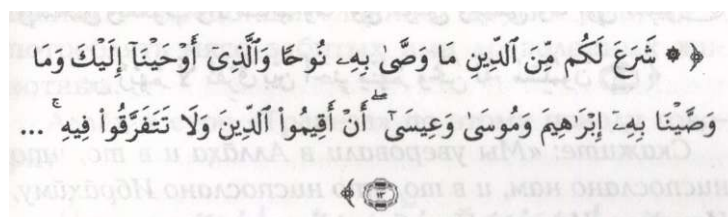 ﴿ ۞ شَرَعَ لَكُم مِّنَ ٱلدِّينِ مَا وَصَّىٰ بِهِۦ نُوحًا وَٱلَّذِىٓ أَوْحَيْنَآ إِلَيْكَ وَمَا
وَصَّيْنَا بِهِۦٓ إِبْرَٰهِيمَ وَمُوسَىٰ وَعِيسَىٰٓ ۖ أَنْ أَقِيمُوا۟ ٱلدِّينَ وَلَا تَتَفَرَّقُوا۟ فِيهِ ۚ ...
۝١٣ ﴾
Скажите: «Мы уверовали в Аллаха и в то, что
ниспослано нам, и в то, что ниспослано Ибрахиму,